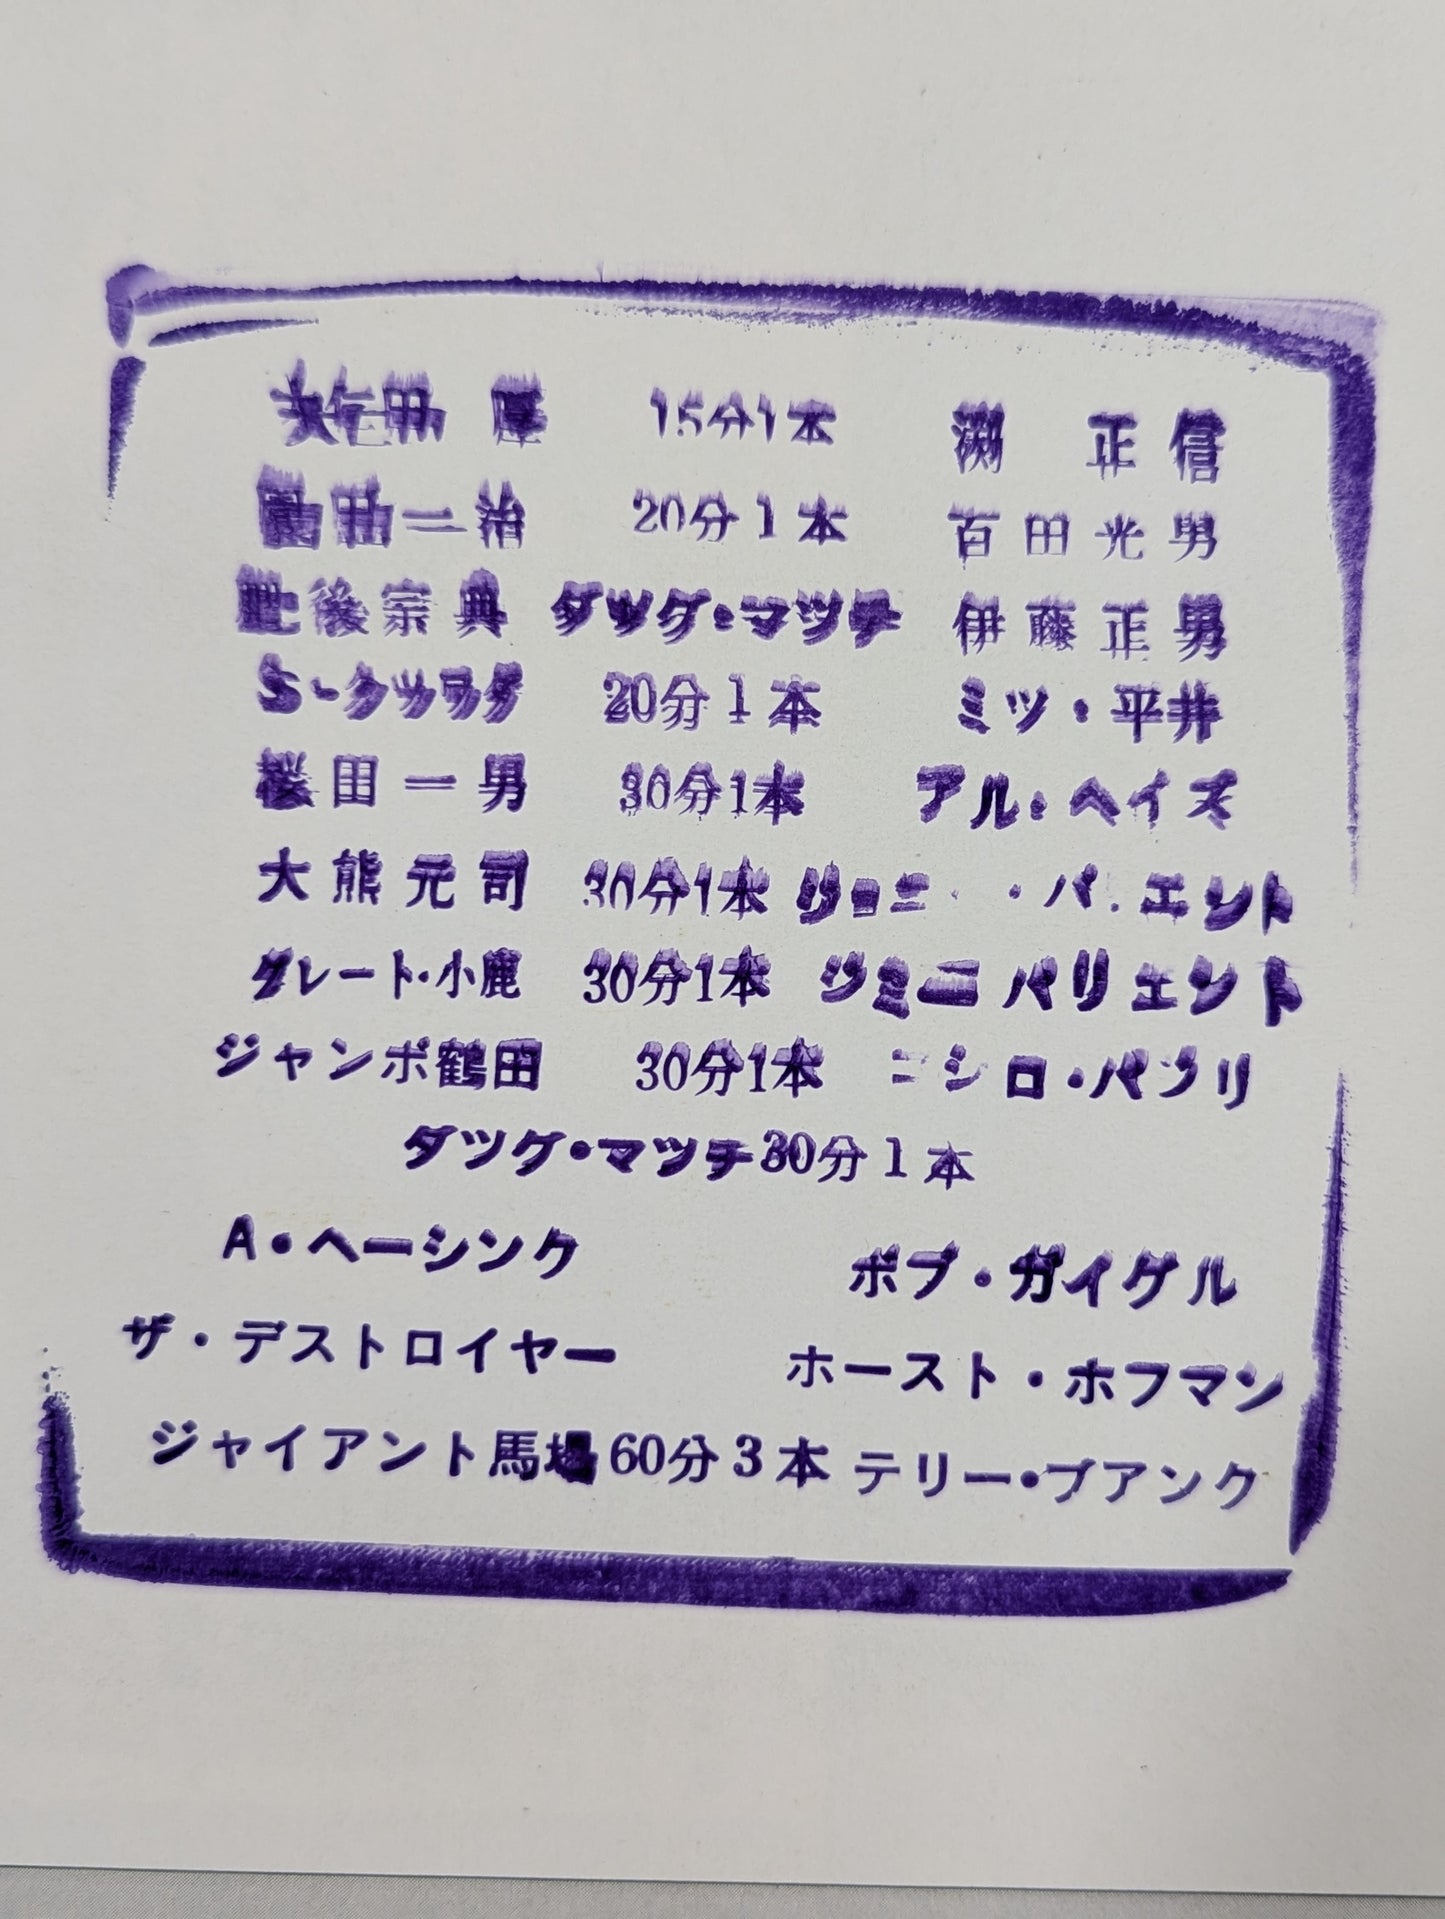 大仁田 厚 15分1本 渕 正信
薗田一治 20分1本 百田光男
肥後宗典 タッグ・マッチ 伊藤正男
S・クツワダ 20分1本 ミツ・平井
桜田一男 30分1本 アル・ヘイズ
大熊元司 30分1本 パ エント
グレート・小鹿 30分1本 ジミニ パリエント
ジャンボ鶴田 30分1本 ニシロ・パブリ
タッグ・マッチ30分1本
A・ヘーシンク ボブ・ガイゲル
ザ・デストロイヤー ホースト・ホフマン
ジャイアント馬場 60分3本 テリー・ブアンク